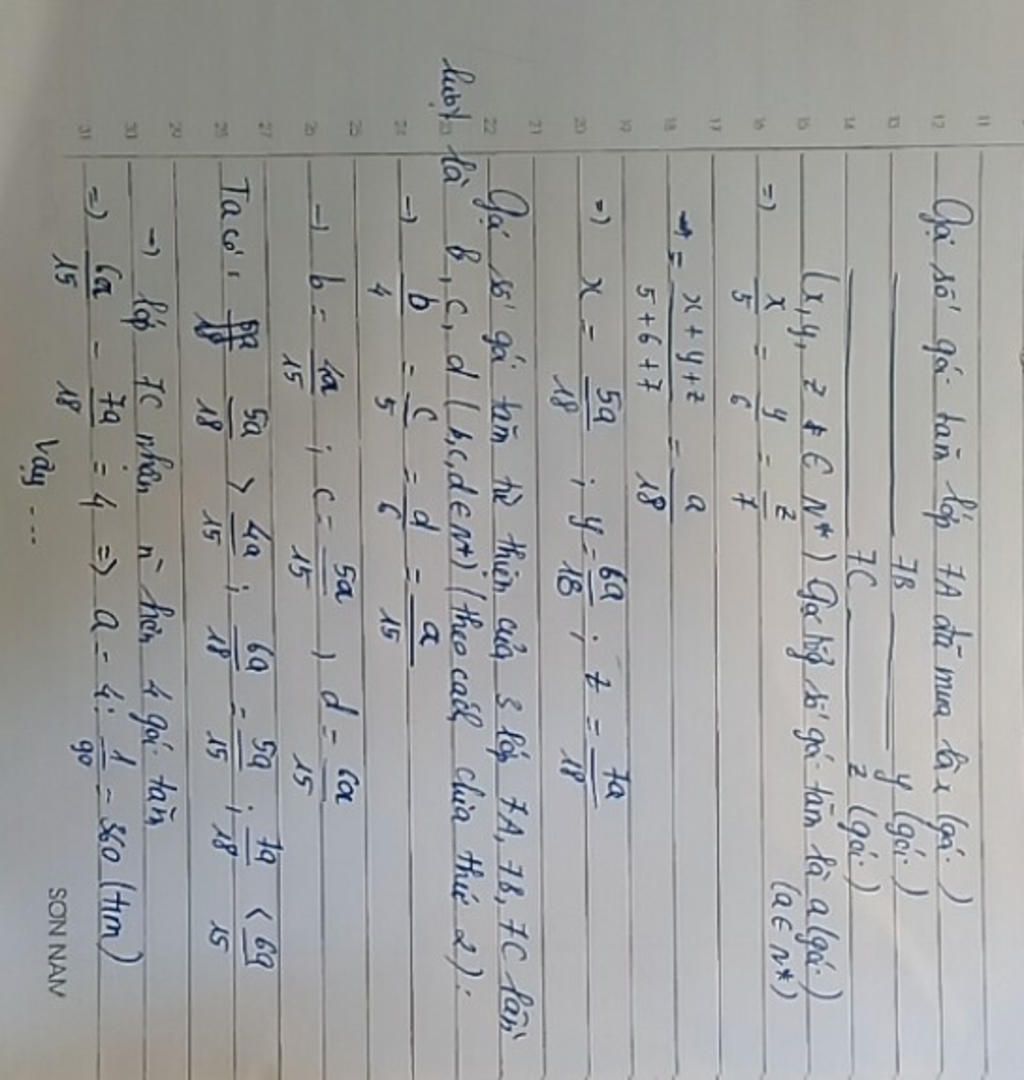 Gọi số gói tăm lớp 7A đã mua là x (gói)
7B y (gói)
7C z (gói)
(x, y, z ∈ N*) Gọi tổng số gói tăm là a (gói)
(a ∈ N*)
=) x/5 = y/6 = z/7
= x+y+z/5+6+7 = a/18
=) x = 5a/18 ; y = 6a/18 ; z = 7a/18
Gọi số gói tăm từ thiện của 3 lớp 7A, 7B, 7C lần
lượt là b, c, d (b,c,d ∈ N*) (theo cách chia thứ 2):
→ b/4 = c/5 = d/6 = a/15
→ b = 4a/15 ; c = 5a/15 , d = 6a/15
Ta có: 5a/18 > 4a/15 ; 6a/18 = 5a/15 ; 7a/18 < 6a/15
→ lớp 7C nhận n` hơn 4 gói tăm
=) 6a/15 - 7a/18 = 4 => a = 4 : 1/90 = 360 (t/m)
Vậy ...
SON NAM
11 12 13 14 15 16 17 18 19 20 21 22 23 24 25 26 27 28 29 30 31